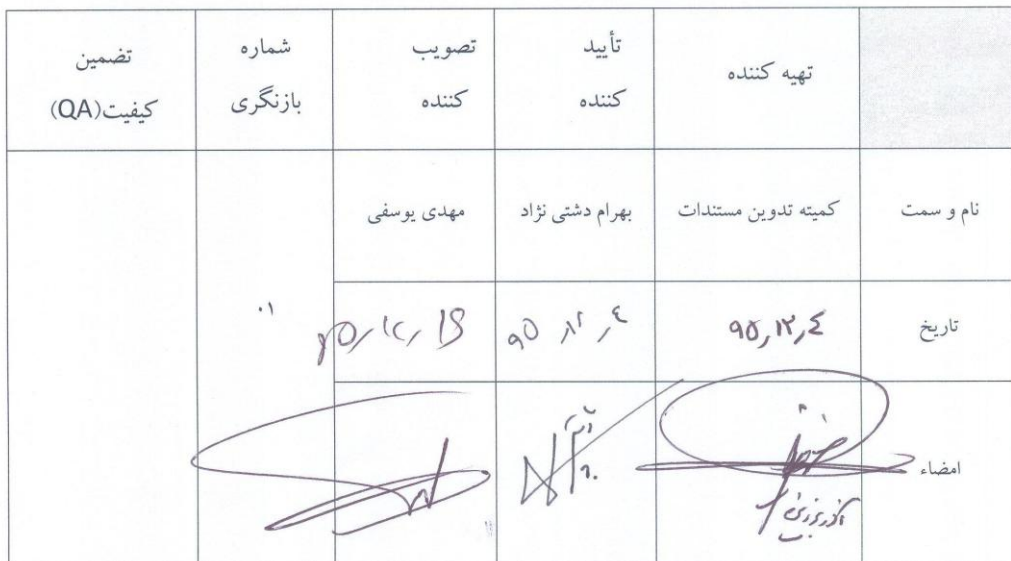 تهیه کننده
تأیید
کننده
تصویب
کننده
شماره
بازنگری
تضمین
کیفیت(QA)
نام و سمت
کمیته تدوین مستندات
بهرام دشتی نژاد
مهدی یوسفی
تاریخ
۹۵,۱۲,۴
۹۵,۱۲,۴
۰۱
امضاء